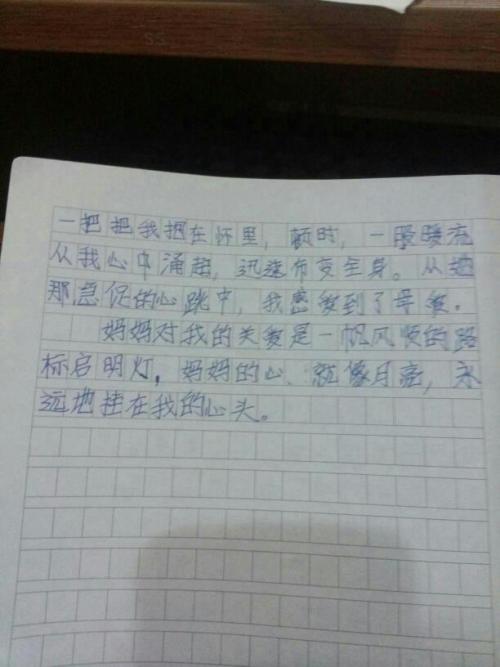 一把把我拥在怀里，顿时，一股暖流
从我心中涌起，迅速布变全身。从她
那急促的心跳中，我感爱到了母爱。
妈妈对我的关爱是一帆风顺的路
标启明灯，妈妈的心、就像月亮，永
远地挂在我的心头。